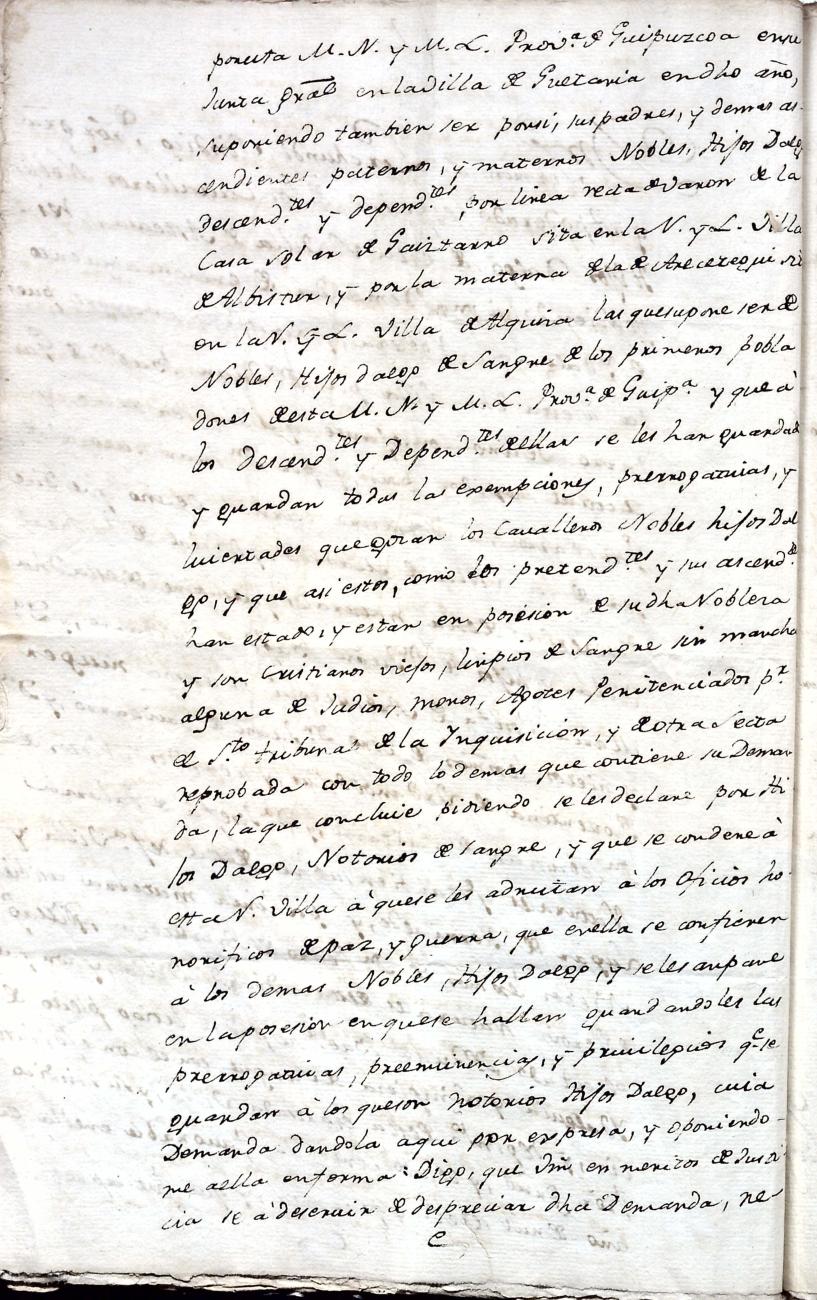 por esta M. N. y M. L. Prov.ª de Guipuzcoa en su
Junta Gràl en la Villa de Guetaria en dho año,
suponiendo tambien ser por si, sus padres, y demas as-
cendientes paternos, y maternos Nobles, Hijos Dalgo
descend.tes y depend.tes por linea recta de varon de la
Casa solar de Gaiztarro sita en la N. y L. Villa
de Albistur, y por la materna de la de Arecetegui sit
en la N. y L. Villa de Alquiza las que supone ser de
Nobles, Hijos dalgo de Sangre de los primeros pobla
dores de esta M. N. y M. L. Prov.ª de Guip.ª y que à
los descend.tes y Depend.tes de ellas se les han guardad
y guardan todas las exempciones, prerrogativas, y
livertades que gozan los Cavalleros Nobles hijos Dal
go, y que asi estos, como los pretend.tes y sus ascend.tes
han estado, y estan en posesion de su dha Nobleza
y son Cristianos viejos, limpios de Sangre sin mancha
alguna de Judios, moros, Agotes Penitenciados p.r
el S.to tribunal de la Ynquisicion, y de otra Secta
reprobada con todo lo demas que contiene su Deman-
da, la que concluie pidiendo se les declare por Hi
jos Dalgo, Notorios de sangre, y que se condene à
esta N. Villa à que se les admitan à los Oficios ho-
norificos de paz, y guerra, que en ella se confieren
à los demas Nobles, Hijos Dalgo, y se les ampare
en la posesion en que se hallan guardandoles las
prerrogativas, preeminencias, y privilegios q.e se
guardan à los que son notorios Hijos Dalgo, cuia
Demanda dandola aqui por expresa, y oponiendo-
me a ella en forma: Digo, que Vm̃ en meritos de Justi-
cia se à de servir de despreciar dha Demanda, ne-